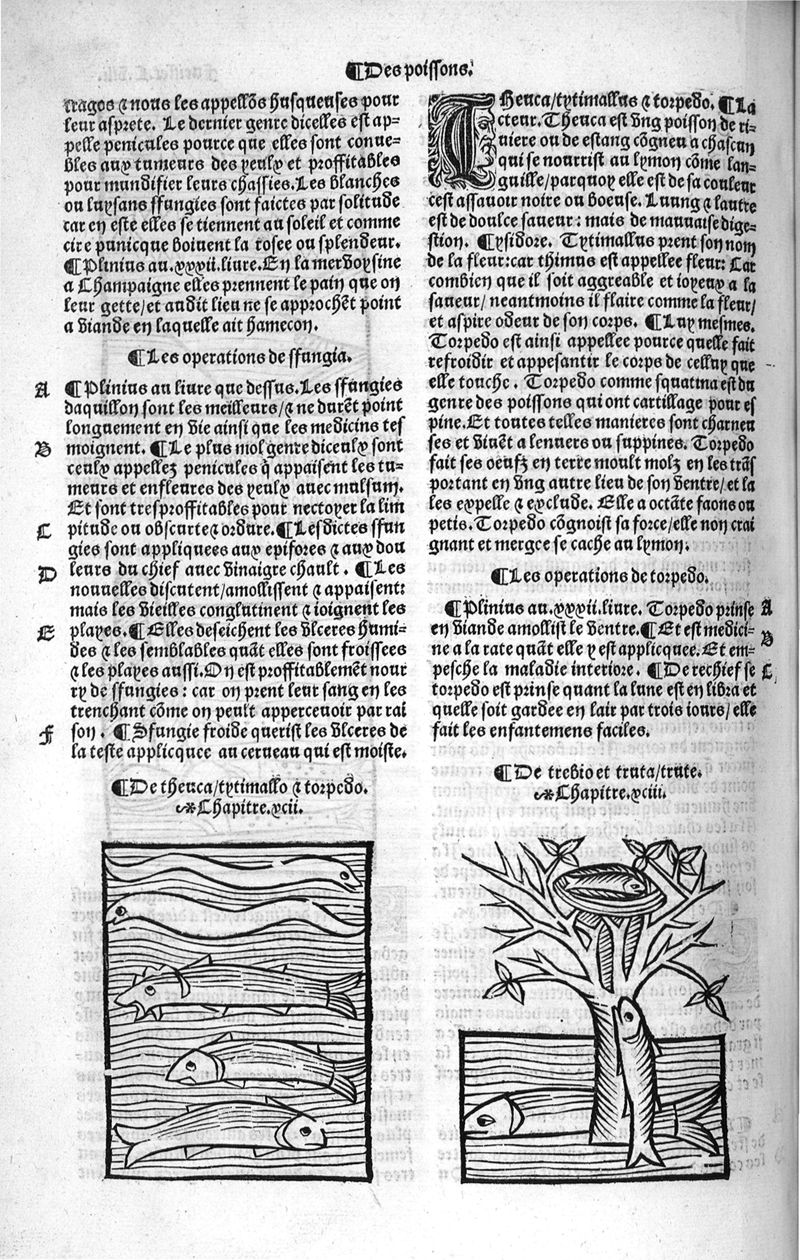 ¶Des poissons.
tragos ⁊ nous les appellõs husqueuses pour
leur asprete. Le dernier genre dicelles est ap-
pelle penicules pource que elles sont conue-
bles aux tumeurs des yeulx et proffitables
pour mundifier leurs chassies. Les blanches
ou luysans sfungies sont faictes par solitude
car en este elles se tiennent au soleil et comme
cire punicque boiuent la rosee ou splendeur.
¶Plinius au .xxxii. liure. En la mer voysine
a Champaigne elles prennent le pain que on
leur gette/ et audit lieu ne se approchẽt point
a viande en laquelle ait hamecon.
¶Les operations de sfungia.
A ¶Plinius au liure que dessus. Les sfungies
daquillon sont les meilleurs/ ⁊ ne durẽt point
longuement en vie ainsi que les medicins tes
B moignent. ¶Le plus mol genre diceulx sont
ceulx appellez penicules q̃ appaisent les tu-
meurs et enfleures des yeulx auec mulsum.
Et sont tresproffitables pour nectoyer la lim
C pitude ou obscurte ⁊ ordure. ¶Lesdictes sfun
gies sont appliquees aux epifores ⁊ aux dou
D leurs du chief auec vinaigre chault. ¶Les
nouuelles discutent/ amollissent ⁊ appaisent:
mais les vieilles conglutinent ⁊ ioignent les
E playes. ¶Elles deseichent les vlceres humi-
des ⁊ les semblables quãt elles sont froissees
⁊ les playes aussi. On est proffitablemẽt nour
ry de sfungies: car on prent leur sang en les
trenchant cõme on peult appercevoir par rai
F son. ¶Sfungie froide querist les vlceres de
la teste applicquee au cerueau qui est moiste.
¶De theuca/ tytimallo ⁊ torpedo.
Chapitre. xcii.
THeuca/ tytimallus ⁊ torpedo. ¶La
cteur. Theuca est vng poisson de ri-
uiere ou de estang cõgneu a chascun
qui se nourrist au lymon cõme lan-
guille/ parquoy elle est de sa couleur
cest assauoir noire ou boeuse. Luung ⁊ lautre
est de doulce saueur: mais de mauuaise dige-
stion. ¶ysidore. Tytimallus prent son nom
de la fleur: car thimus est appellee fleur: Car
combien que il soit aggreable et ioyeux a la
saueur/ neantmoins il flaire comme la fleur/
et aspire odeur de son corps. ¶Luy mesmes.
Torpedo est ainsi appellee pource quelle fait
refroidir et appesantir le corps de celluy que
elle touche. Torpedo comme squatina est du
genre des poissons qui ont cartillage pour es
pine. Et toutes telles manieres sont charneu
ses et viuẽt a lenuers ou suppines. Torpedo
fait ses oeufz en terre moult molz en les trãs
portant en vng autre lieu de son ventre/ et la
les expelle ⁊ exclude. Elle a octãte faons ou
petis. Torpedo cõgnoist sa force/ elle non crai
gnant et mergee se cache au lymon.
¶Les operations de torpedo.
¶Plinius au .xxxii. liure. Torpedo prinse A
en viande amollist le ventre. ¶Et est medici- B
ne a la rate quãt elle y est applicquee. Et em-
pesche la maladie interiore. ¶De rechief se C
torpedo est prinse quant la lune est en libra et
quelle soit gardee en lair par trois iours/ elle
fait les enfantemens faciles.
¶De trebio et truta/ trute.
Chapitre. xciii.